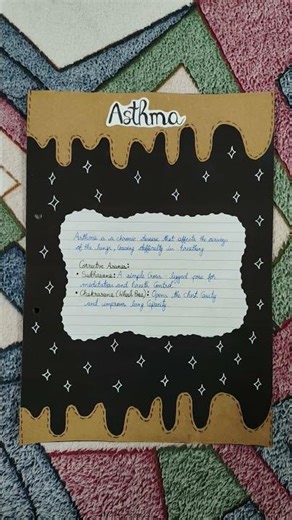 Asthma
Asthma is a chronic disease that affects the airways
of the lungs, causing difficulty in breathing
Corrective Asanas:
• Sukhasana: A simple cross-legged pose for
meditation and breath control.
• Chakrasana (Wheel Pose): Opens the chest cavity
and improves lung capacity